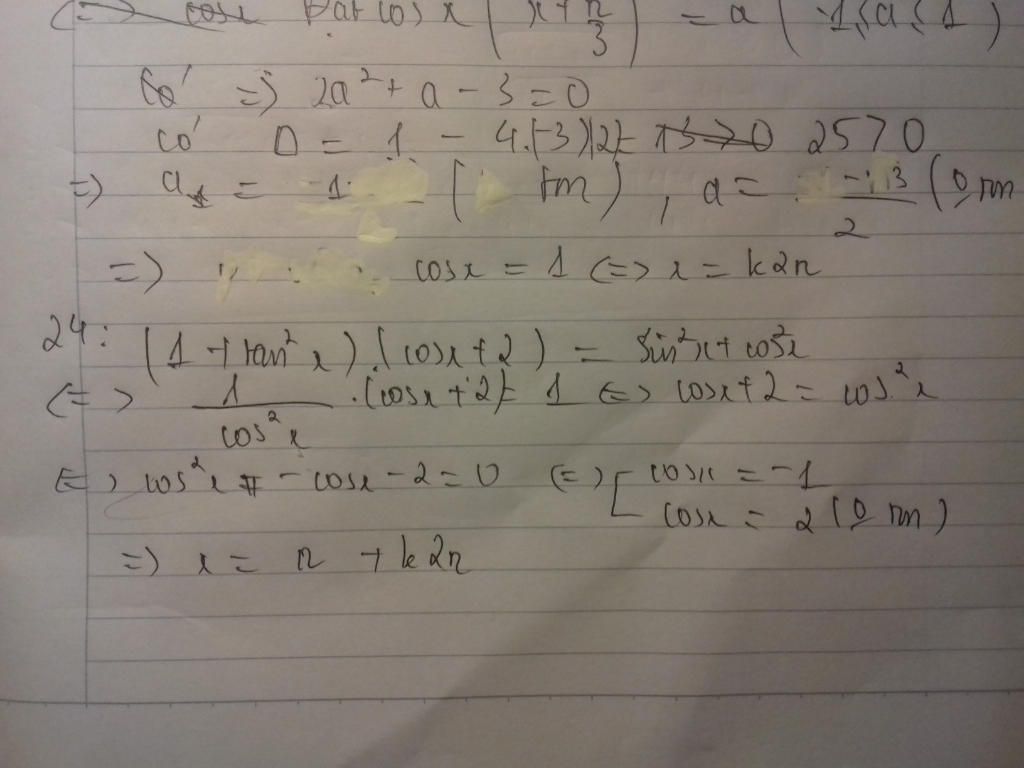 (=> cosx Đặt cos x (x + π/3) = a (-1 ≤ a ≤ 1)
Có => 2a² + a - 3 = 0
có Δ = 1 - 4.(-3)(2) = 13 > 0 25 > 0
=> a = -1 (tm), a = -3/2 (0 tm
=> cosx = 1 <=> x = k2π
24: (1 + tan²x).(cosx + 2) = sin²x + cos²x
<=> 1/cos²x .(cosx + 2) = 1 <=> cosx + 2 = cos²x
<=> cos²x - cosx - 2 = 0 <=> [ cosx = -1
cosx = 2 (0 tm)
=> x = π + k2π